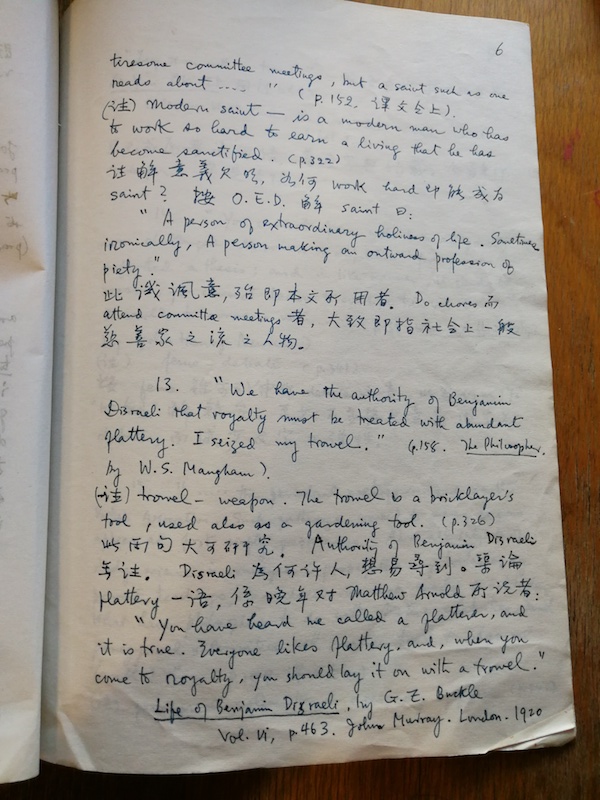 6
tiresome committee meetings, but a saint such as one
reads about .... " (p.152, 譯文仝上).
(註) Modern saint — is a modern man who has
to work so hard to earn a living that he has
become sanctified. (p.322)
註解意義欠明, 為何 work hard 即能成為
saint? 按 O.E.D. 解 saint 曰:
" A person of extraordinary holiness of life. Sometimes
ironically, A person making an outward profession of
piety."
此譏諷意, 殆即本文所用者. Do chores 而
attend committee meetings 者, 大致即指社会上一般
慈善家之流之人物.
13. "We have the authority of Benjamin
Disraeli that royalty must be treated with abundant
flattery. I seized my trowel." (p.158. The Philosopher,
by W. S. Maugham).
(註) trowel - weapon. The trowel is a bricklayer's
tool, used also as a gardening tool. (p.326)
此兩句大可研究. Authority of Benjamin Disraeli
無註. Disraeli 為何許人, 想易尋到. 渠論
flattery 一語, 係晚年对 Matthew Arnold 所説者:
"You have heard me called a flatterer, and
it is true. Everyone likes flattery, and, when you
come to royalty, you should lay it on with a trowel."
Life of Benjamin Disraeli, by G. E. Buckle
Vol. vi, p.463. John Murray. London. 1920